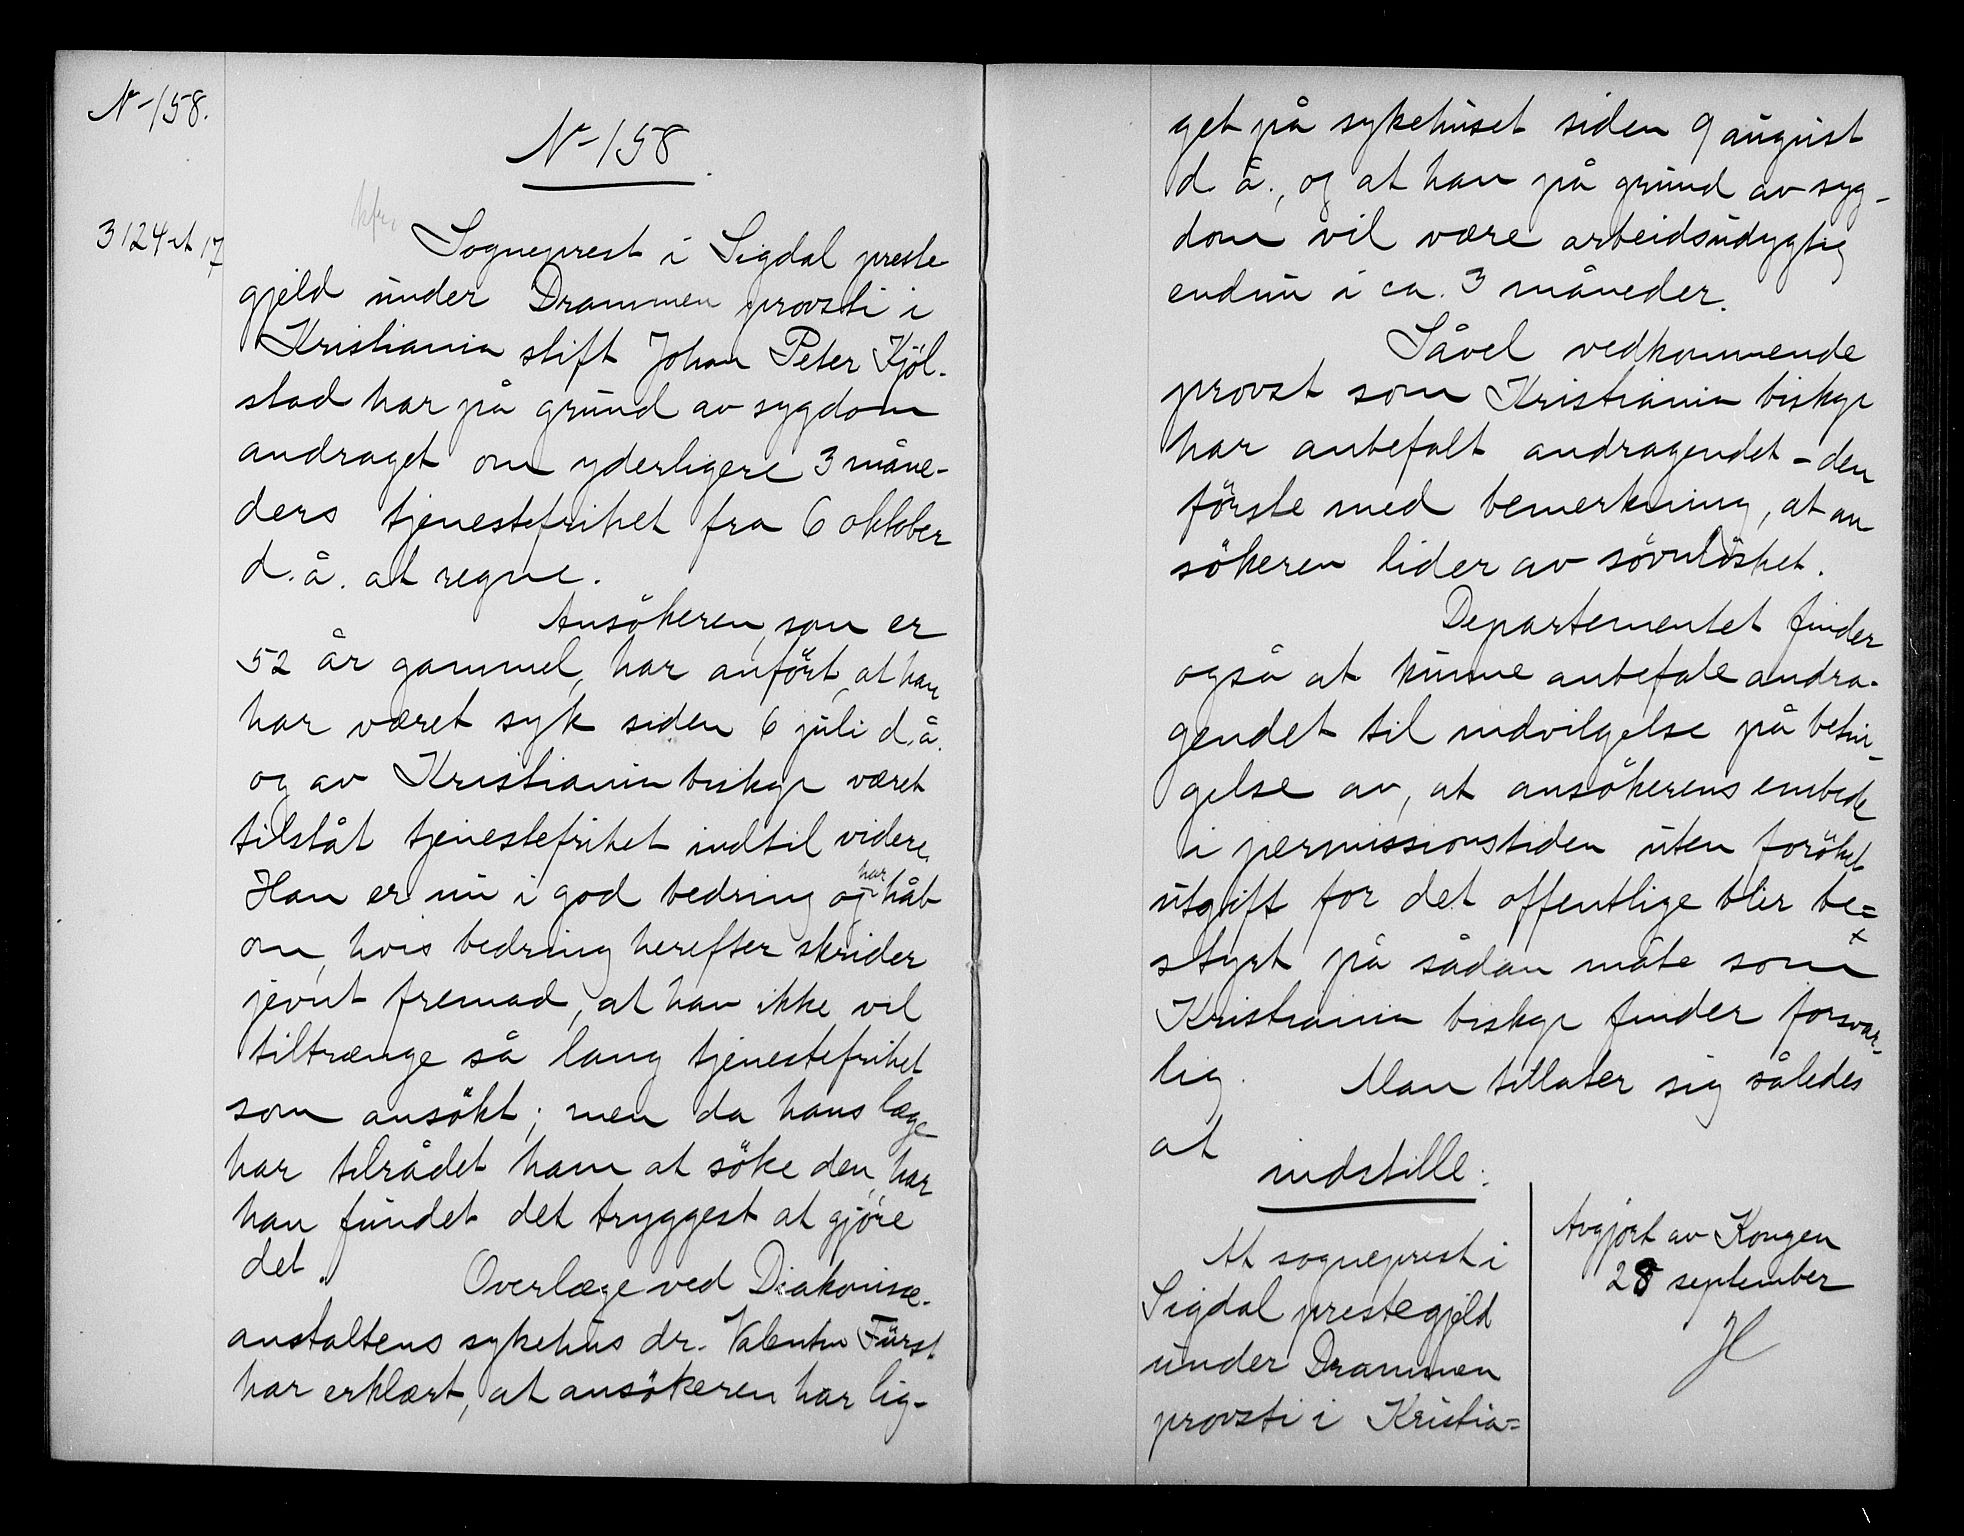 N-158.
N-158.
3124 A 17
Sogneprest i Sigdal preste
gjeld under Drammen provsti i
Kristiania stift Johan Peter Kjöl-
stad har på grund av sygdom
andraget om yderligere 3 måne-
ders tjenestefrihet fra 6 oktober
d. å. at regne.
Ansökeren, som er
52 år gammel, har anfört, at han
har været syk siden 6 juli d. å.
og av Kristiania biskop været
tilståt tjenestefrihet indtil videre.
Han er nu i god bedring og har håb
om, hvis bedring herefter skrider
jevnt fremad, at han ikke vil
tiltrænge så lang tjenestefrihet
som ansökt; men da hans læge
har tilrådet ham at söke den, har
han fundet det tryggest at gjöre
det.
Overlæge ved Diakonisse-
anstaltens sykehus dr. Valentin Fürst
har erklært, at ansökeren har lig-
get på sykehuset siden 9 august
d. å., og at han på grund av syg-
dom vil være arbeidsudygtig
endnu i ca. 3 måneder.
Såvel vedkommende
provst som Kristiania biskop
har anbefalt andragendet - den
förste med bemerkning, at an
sökeren lider av sövnlöshet.
Departementet finder
også at kunne anbefale andra-
gendet til indvilgelse på betin-
gelse av, at ansökerens embede
i permissionstiden uten forøket
utgift for det offentlige blir be=
styrt på sådan måte som
Kristiania biskop finder forsvar-
lig. Man tillater sig således
at
indstille:
At sogneprest i
Sigdal prestegjeld
under Drammen
provsti i Kristia=
Avgjort av Kongen
28 september
H